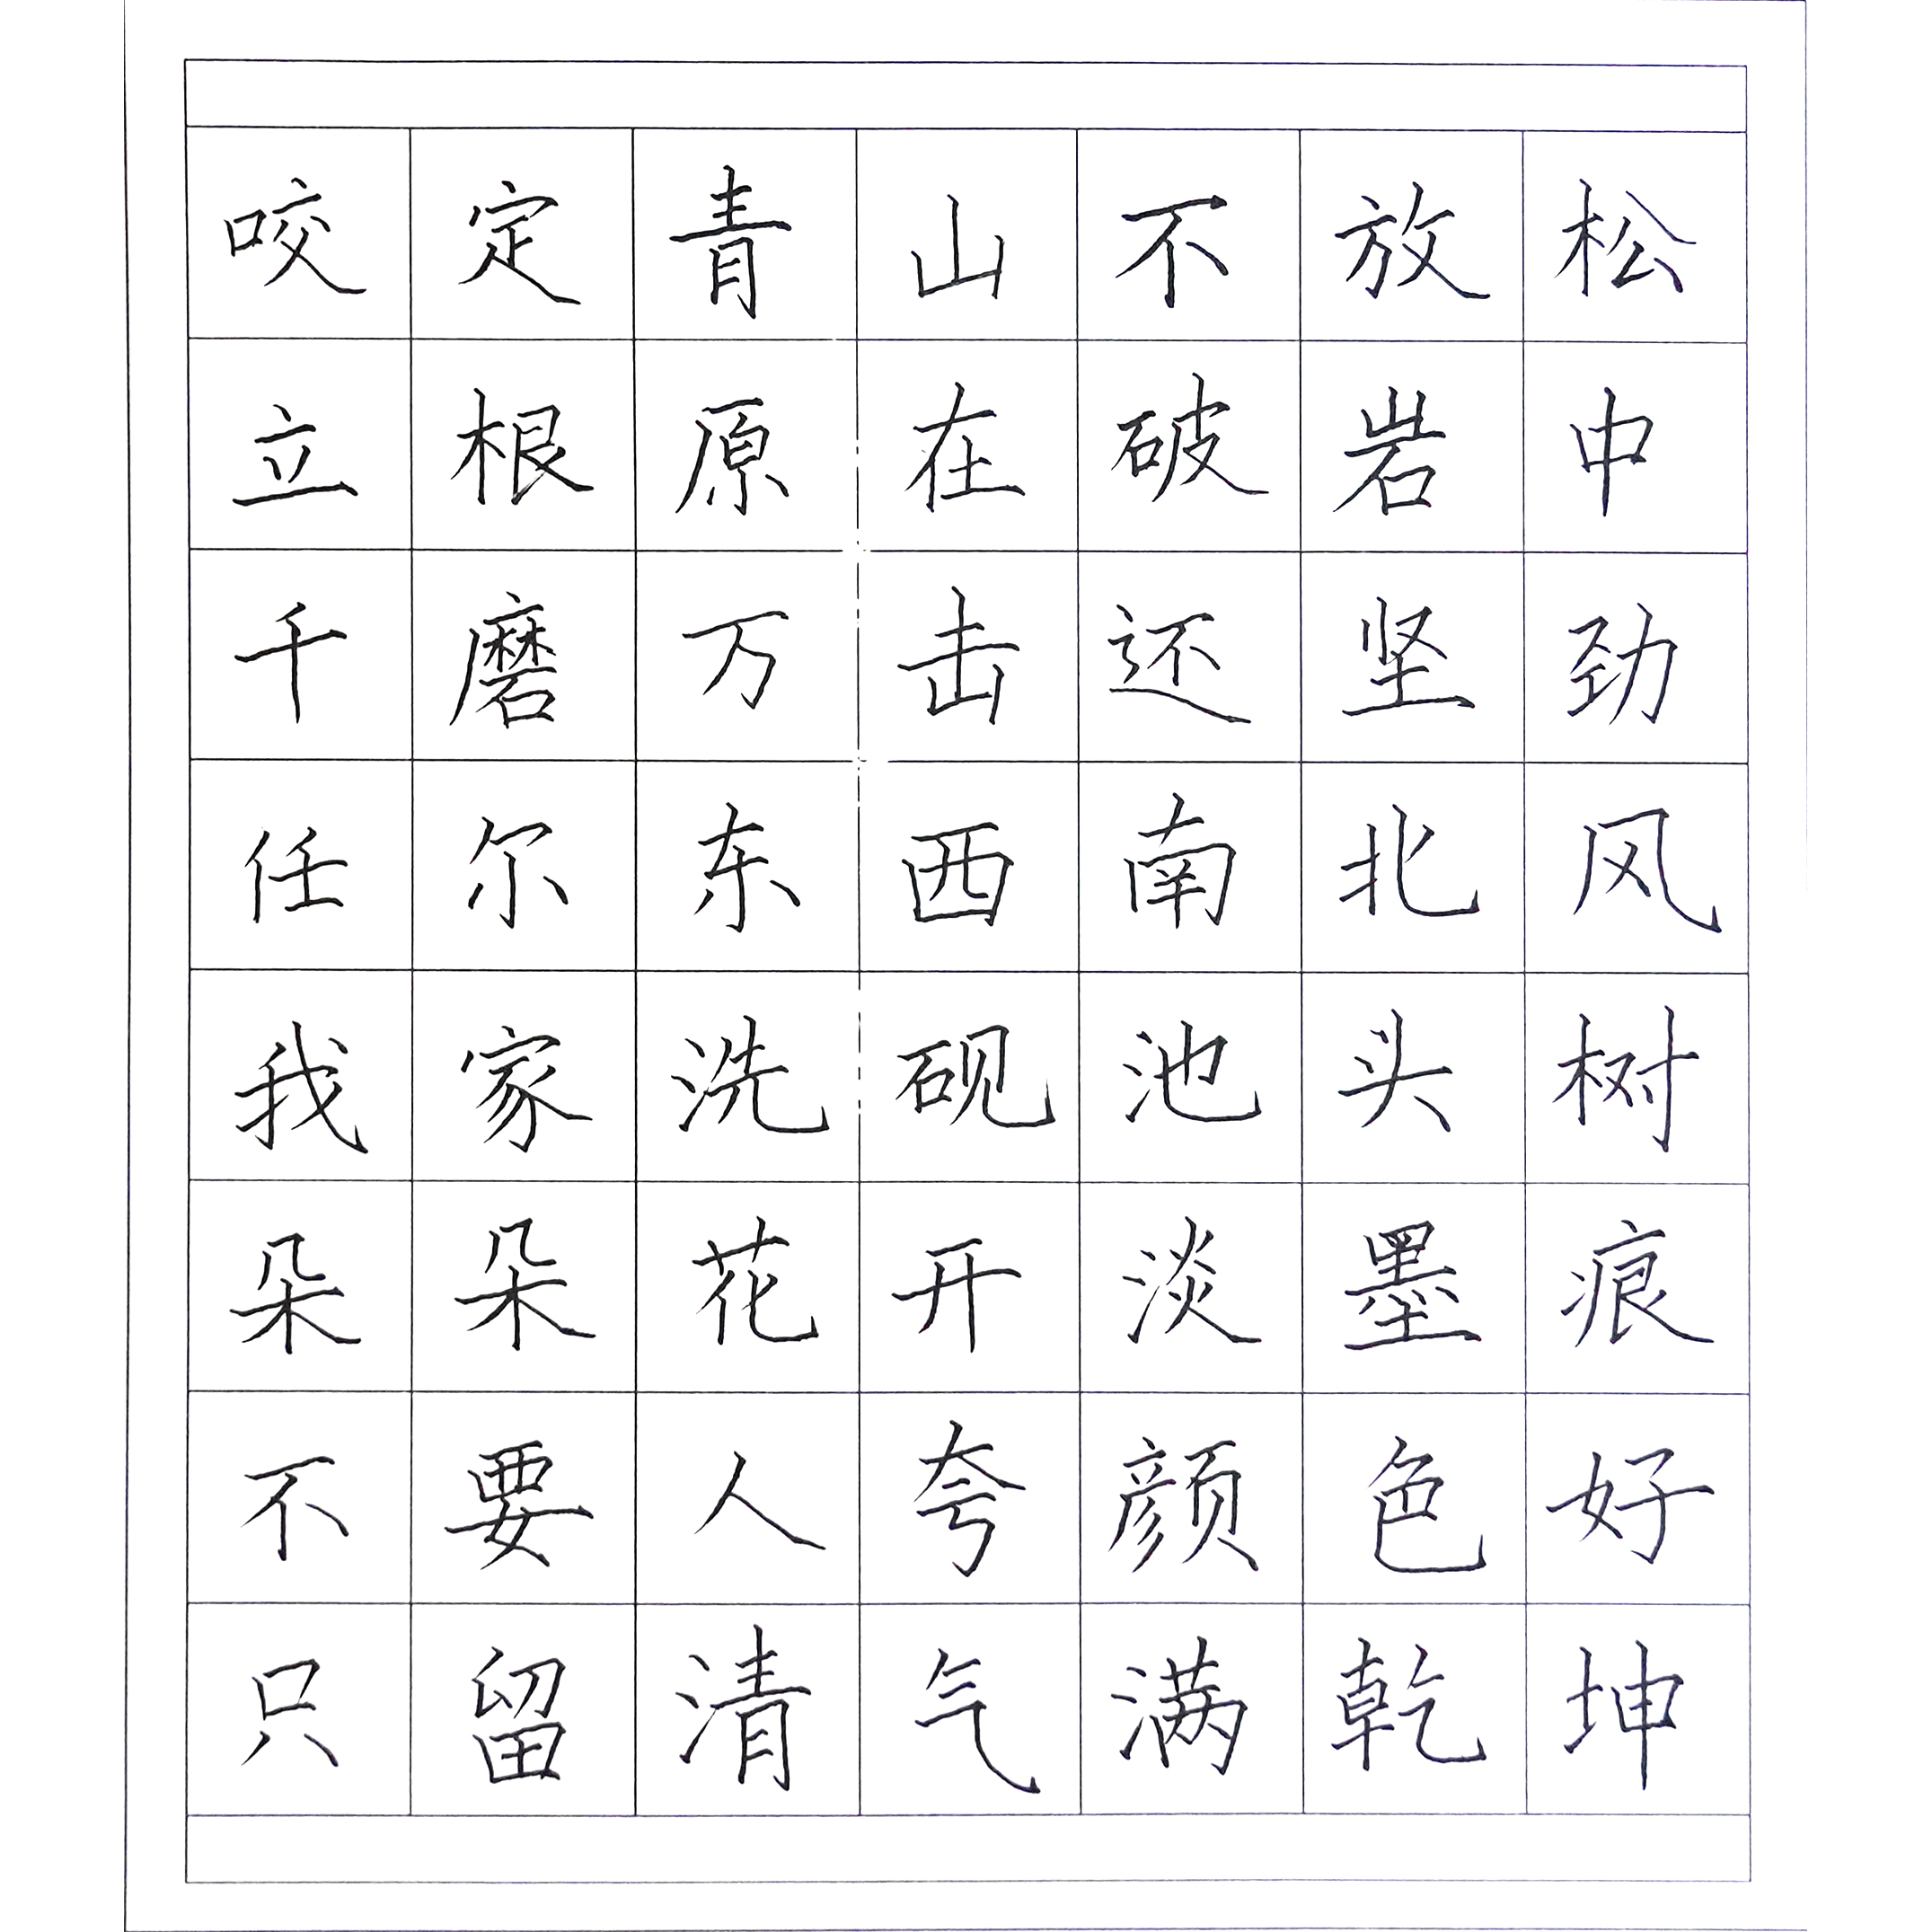 咬定青山不放松
立根原在破岩中
千磨万击还坚劲
任尔东西南北风
我家洗砚池头树
朵朵花开淡墨痕
不要人夸颜色好
只留清气满乾坤